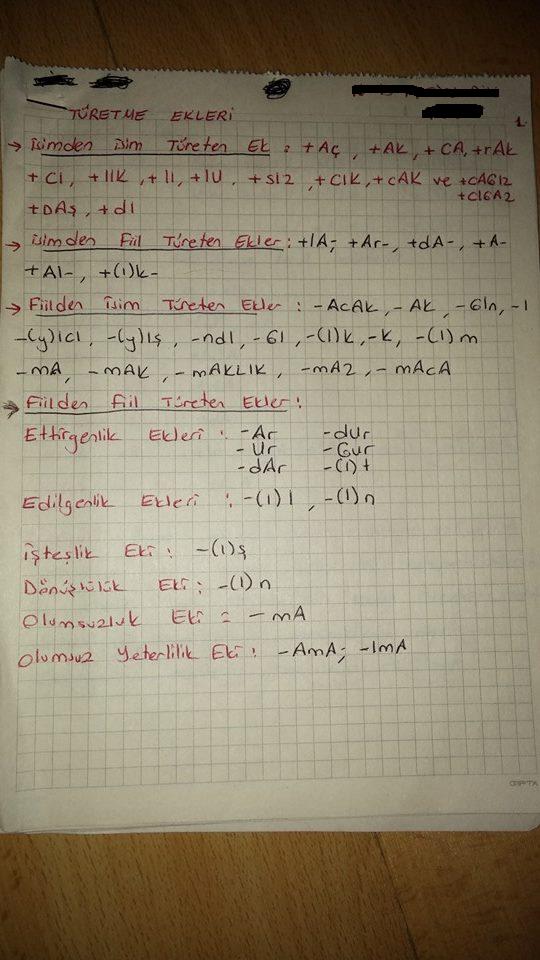 TÜRETME EKLERİ
1.
→ İsimden İsim Türeten Ek : +Aç , +Ak , +CA, +rAk
+CI, +lIK , +lI , +lU , +sIz , +CIK , +cAK ve +CAGIZ
+CIGAZ
+DAş , +dI
→ İsimden Fiil Türeten Ekler : +lA-, +Ar- , +dA- , +A-
+Al- , +(I)k-
→ Fiilden İsim Türeten Ekler : -AcAk , -AK , -GIn , -I
-(y)IcI , -(y)Iş , -ndI , -GI , -(I)k , -k , -(I)m
-mA , -mAK , -mAKLIK , -mAz , -mAcA
→ Fiilden Fiil Türeten Ekler :
Ettirgenlik Ekleri : -Ar -dUr
-Ur -GUr
-dAr -(I)t
Edilgenlik Ekleri : -(I)l , -(I)n
İşteşlik Eki : -(I)ş
Dönüşlülük Eki : -(I)n
Olumsuzluk Eki = -mA
Olumsuz Yeterlilik Eki : -AmA- , -ImA